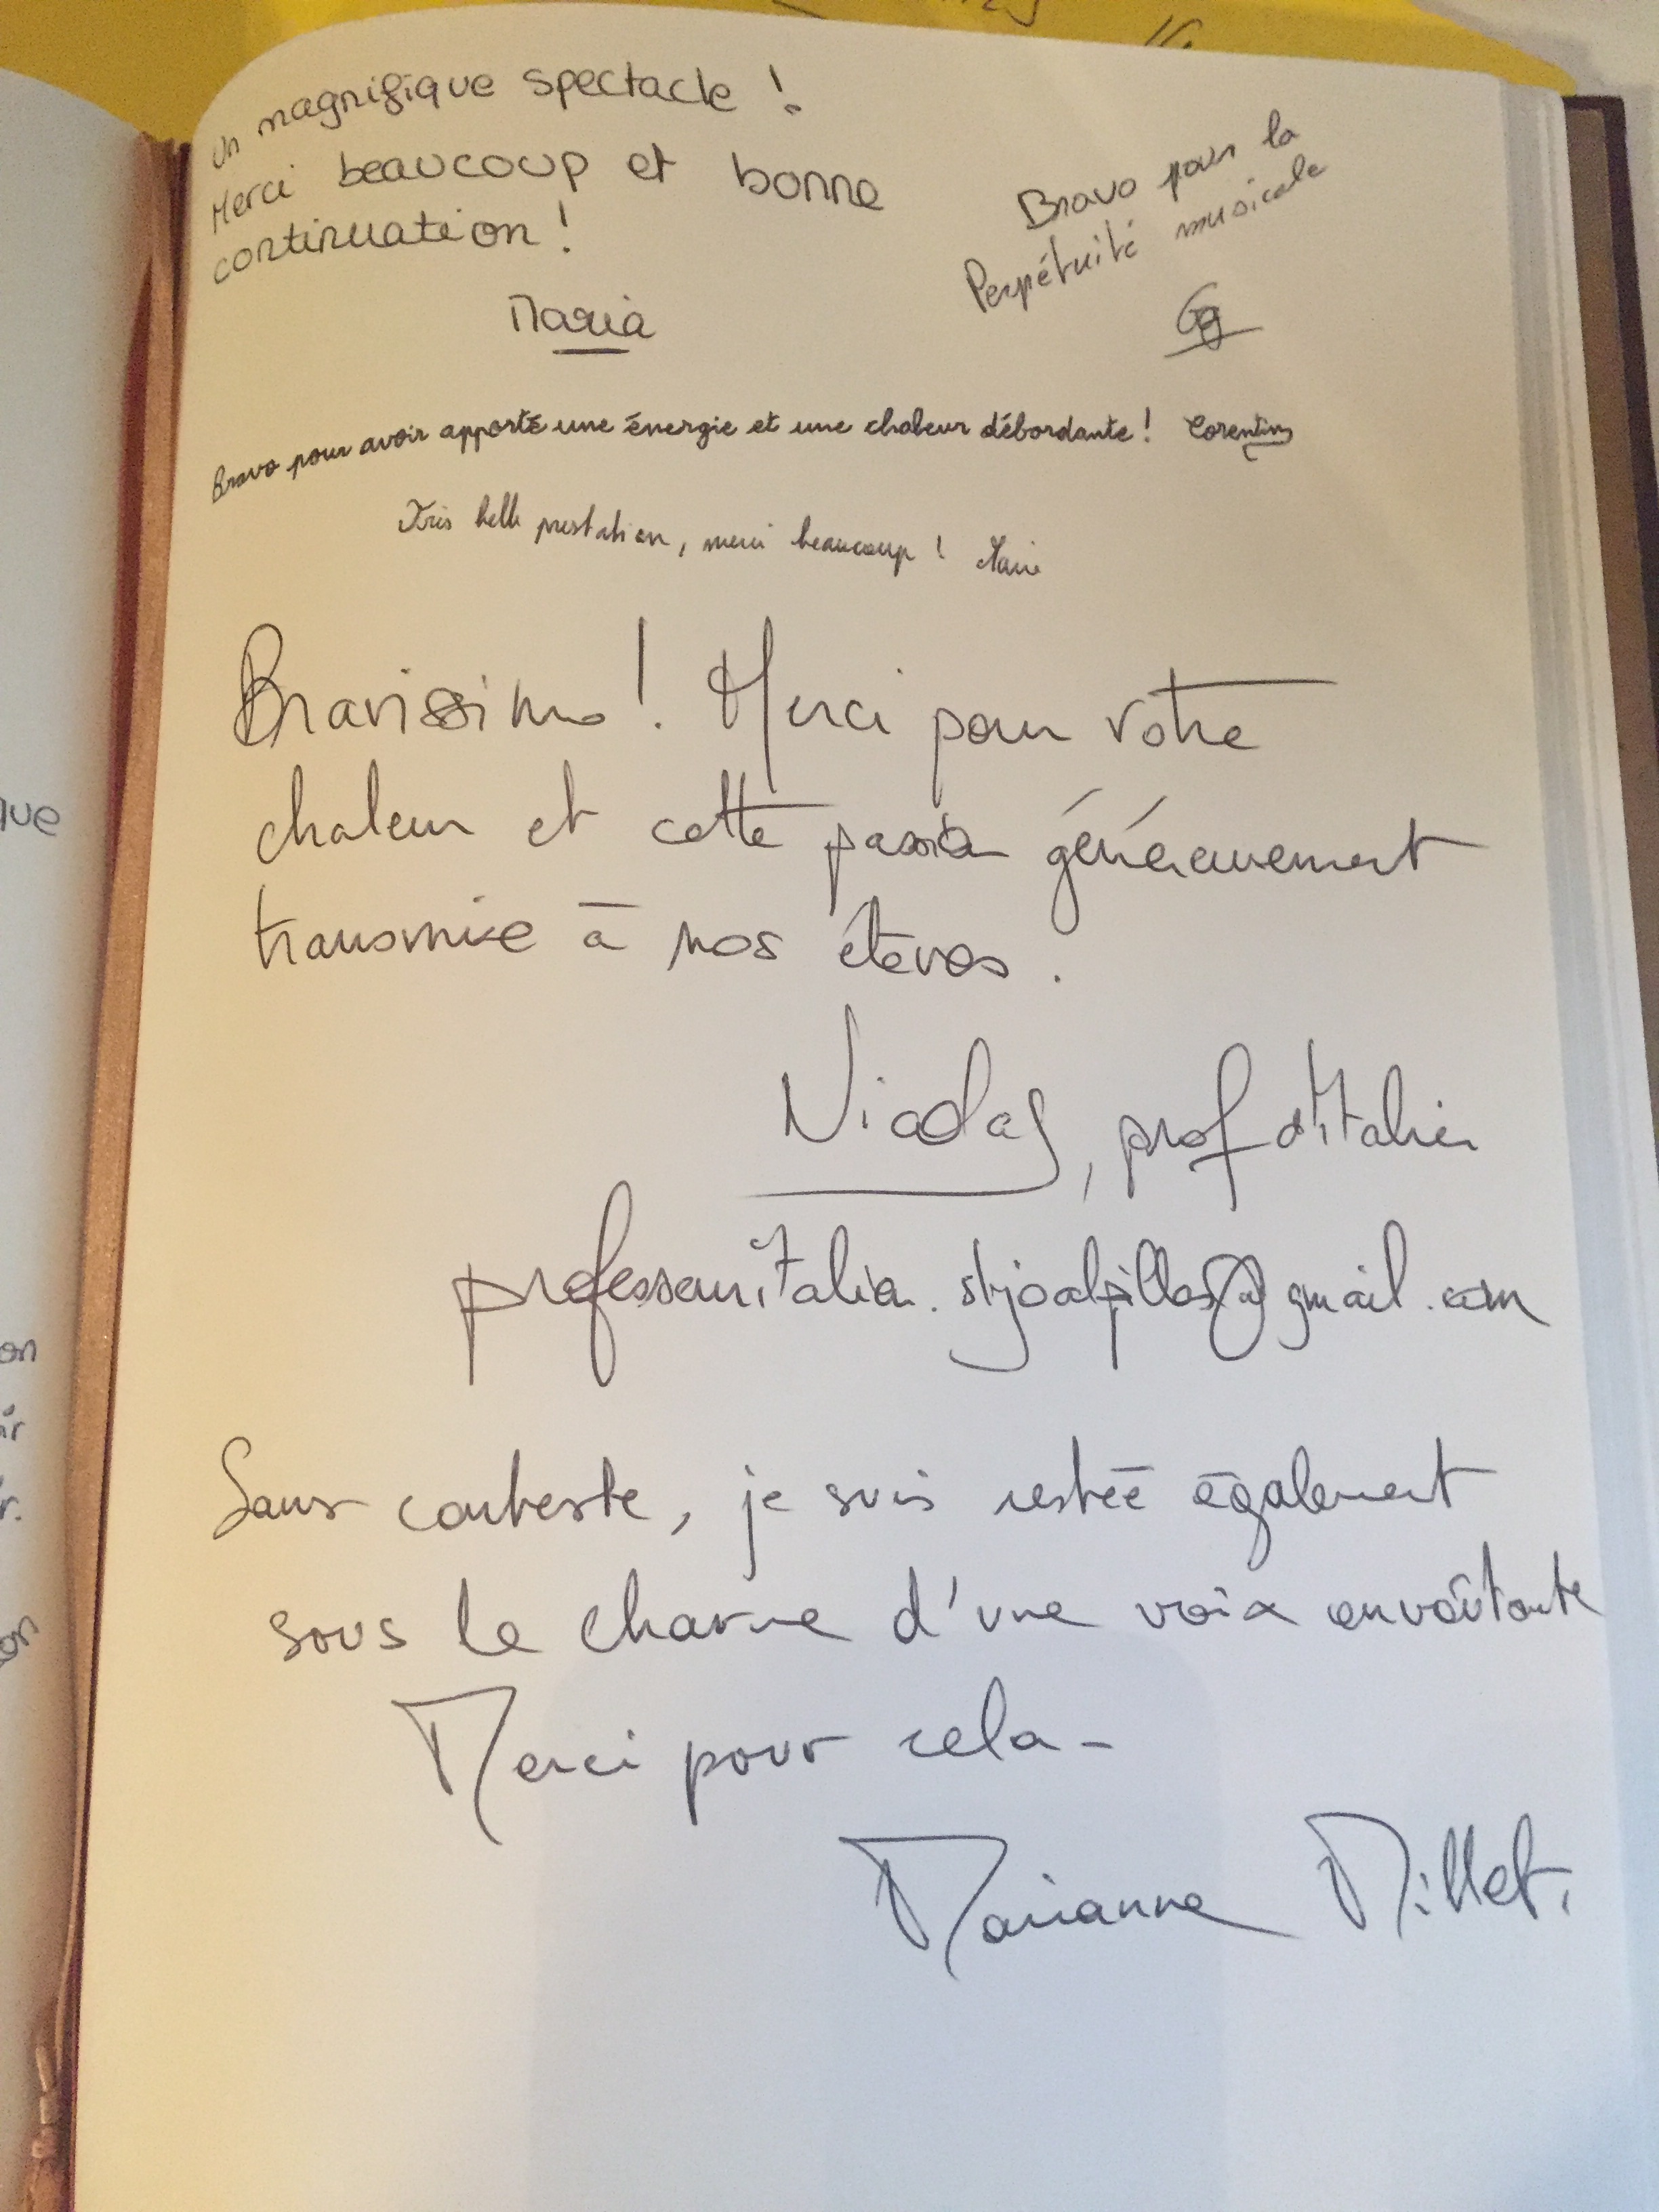 Un magnifique spectacle !
Merci beaucoup et bonne
continuation !
Maria
Bravo pour la
Perpétuité musicale
Bravo pour avoir apporté une énergie et une chaleur débordante ! Corentin
Très belle prestation, merci beaucoup ! Marie
Bravissimo ! Merci pour votre
chaleur et cette passion généreusement
transmise à nos élèves.
Nicolas, prof d'Italien
@gmail.com
Sans conteste, je suis restée également
sous le charme d'une voix envoûtante
Merci pour cela -
Marianne Millet.
que
on
ir
r.
on